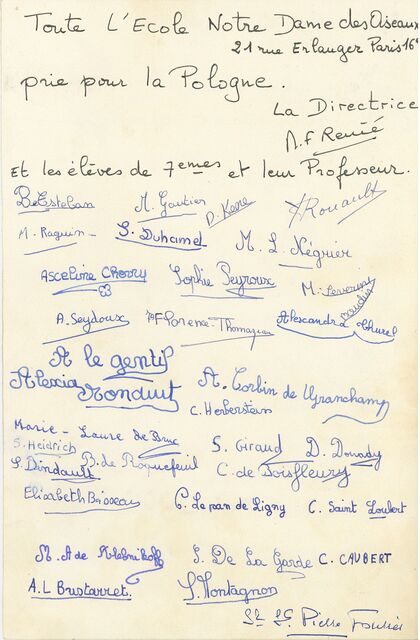 Toute L'Ecole Notre Dame des Oiseaux
21 rue Erlanger Paris 16e
prie pour la Pologne.
La Directrice
M.F Renié
Et les élèves de 7emes et leur Professeur.
B. Esteban M. Gautier D. Kere Rouault
M. Raguin S. Duhamel M. L. Négrier
Asceline Cherry Sophie Seyroux M.
A. Seydoux Florence Thomazeau Alexandra Churel
A le gentil
Alexia Ronduit A. Corbin de
C. Herberstein
Marie-Laure de
S. Heidrich S. Giraud D. Douady
S. Dindault B. de Roquefeuil C. de Boisfleury
Elisabeth Brisseau C. Le pan de Ligny C. Saint Loubert
M. A de S. De La Garde C. CAUBERT
A.L Bustarret S. Montagnon
Pierre Fournier